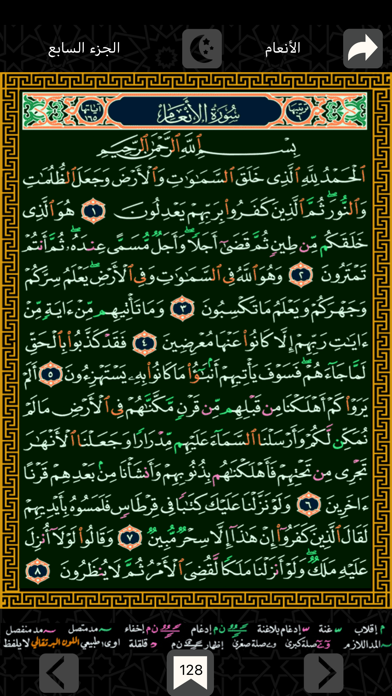 الأنعام
الجزء السابع
سُورَةُ الأَنْعَامِ
بِسْمِ ٱللَّهِ ٱلرَّحْمَٰنِ ٱلرَّحِيمِ
ٱلْحَمْدُ لِلَّهِ ٱلَّذِى خَلَقَ ٱلسَّمَٰوَٰتِ وَٱلْأَرْضَ وَجَعَلَ ٱلظُّلُمَٰتِ
وَٱلنُّورَ ۖ ثُمَّ ٱلَّذِينَ كَفَرُوا۟ بِرَبِّهِمْ يَعْدِلُونَ ١ هُوَ ٱلَّذِى
خَلَقَكُم مِّن طِينٍ ثُمَّ قَضَىٰٓ أَجَلًا ۖ وَأَجَلٌ مُّسَمًّى عِندَهُۥ ۖ ثُمَّ أَنتُمْ
تَمْتَرُونَ ٢ وَهُوَ ٱللَّهُ فِى ٱلسَّمَٰوَٰتِ وَفِى ٱلْأَرْضِ ۖ يَعْلَمُ سِرَّكُمْ
وَجَهْرَكُمْ وَيَعْلَمُ مَا تَكْسِبُونَ ٣ وَمَا تَأْتِيهِم مِّنْ ءَايَةٍ مِّنْ
ءَايَٰتِ رَبِّهِمْ إِلَّا كَانُوا۟ عَنْهَا مُعْرِضِينَ ٤ فَقَدْ كَذَّبُوا۟ بِٱلْحَقِّ
لَمَّا جَآءَهُمْ ۖ فَسَوْفَ يَأْتِيهِمْ أَنۢبَٰٓؤُا۟ مَا كَانُوا۟ بِهِۦ يَسْتَهْزِءُونَ ٥ أَلَمْ
يَرَوْا۟ كَمْ أَهْلَكْنَا مِن قَبْلِهِم مِّن قَرْنٍ مَّكَّنَّٰهُمْ فِى ٱلْأَرْضِ مَا لَمْ
نُمَكِّن لَّكُمْ وَأَرْسَلْنَا ٱلسَّمَآءَ عَلَيْهِم مِّدْرَارًا وَجَعَلْنَا ٱلْأَنْهَٰرَ
تَجْرِى مِن تَحْتِهِمْ فَأَهْلَكْنَٰهُم بِذُنُوبِهِمْ وَأَنشَأْنَا مِنۢ بَعْدِهِمْ قَرْنًا
ءَاخَرِينَ ٦ وَلَوْ نَزَّلْنَا عَلَيْكَ كِتَٰبًا فِى قِرْطَاسٍ فَلَمَسُوهُ بِأَيْدِيهِمْ
لَقَالَ ٱلَّذِينَ كَفَرُوٓا۟ إِنْ هَٰذَآ إِلَّا سِحْرٌ مُّبِينٌ ٧ وَقَالُوا۟ لَوْلَآ أُنزِلَ
عَلَيْهِ مَلَكٌ ۖ وَلَوْ أَنزَلْنَا مَلَكًا لَّقُضِىَ ٱلْأَمْرُ ثُمَّ لَا يُنظَرُونَ ٨
م إقلاب س غنة س إدغام بلاغنة ن م إدغام ن م إخفاء ~ مد متصل ~ مد منفصل
~ المد اللازم صلة كبرى صلة صغرى إظهار ن م قلقلة اوى: طبيعي اللون البرتقالي لا يلفظ
128